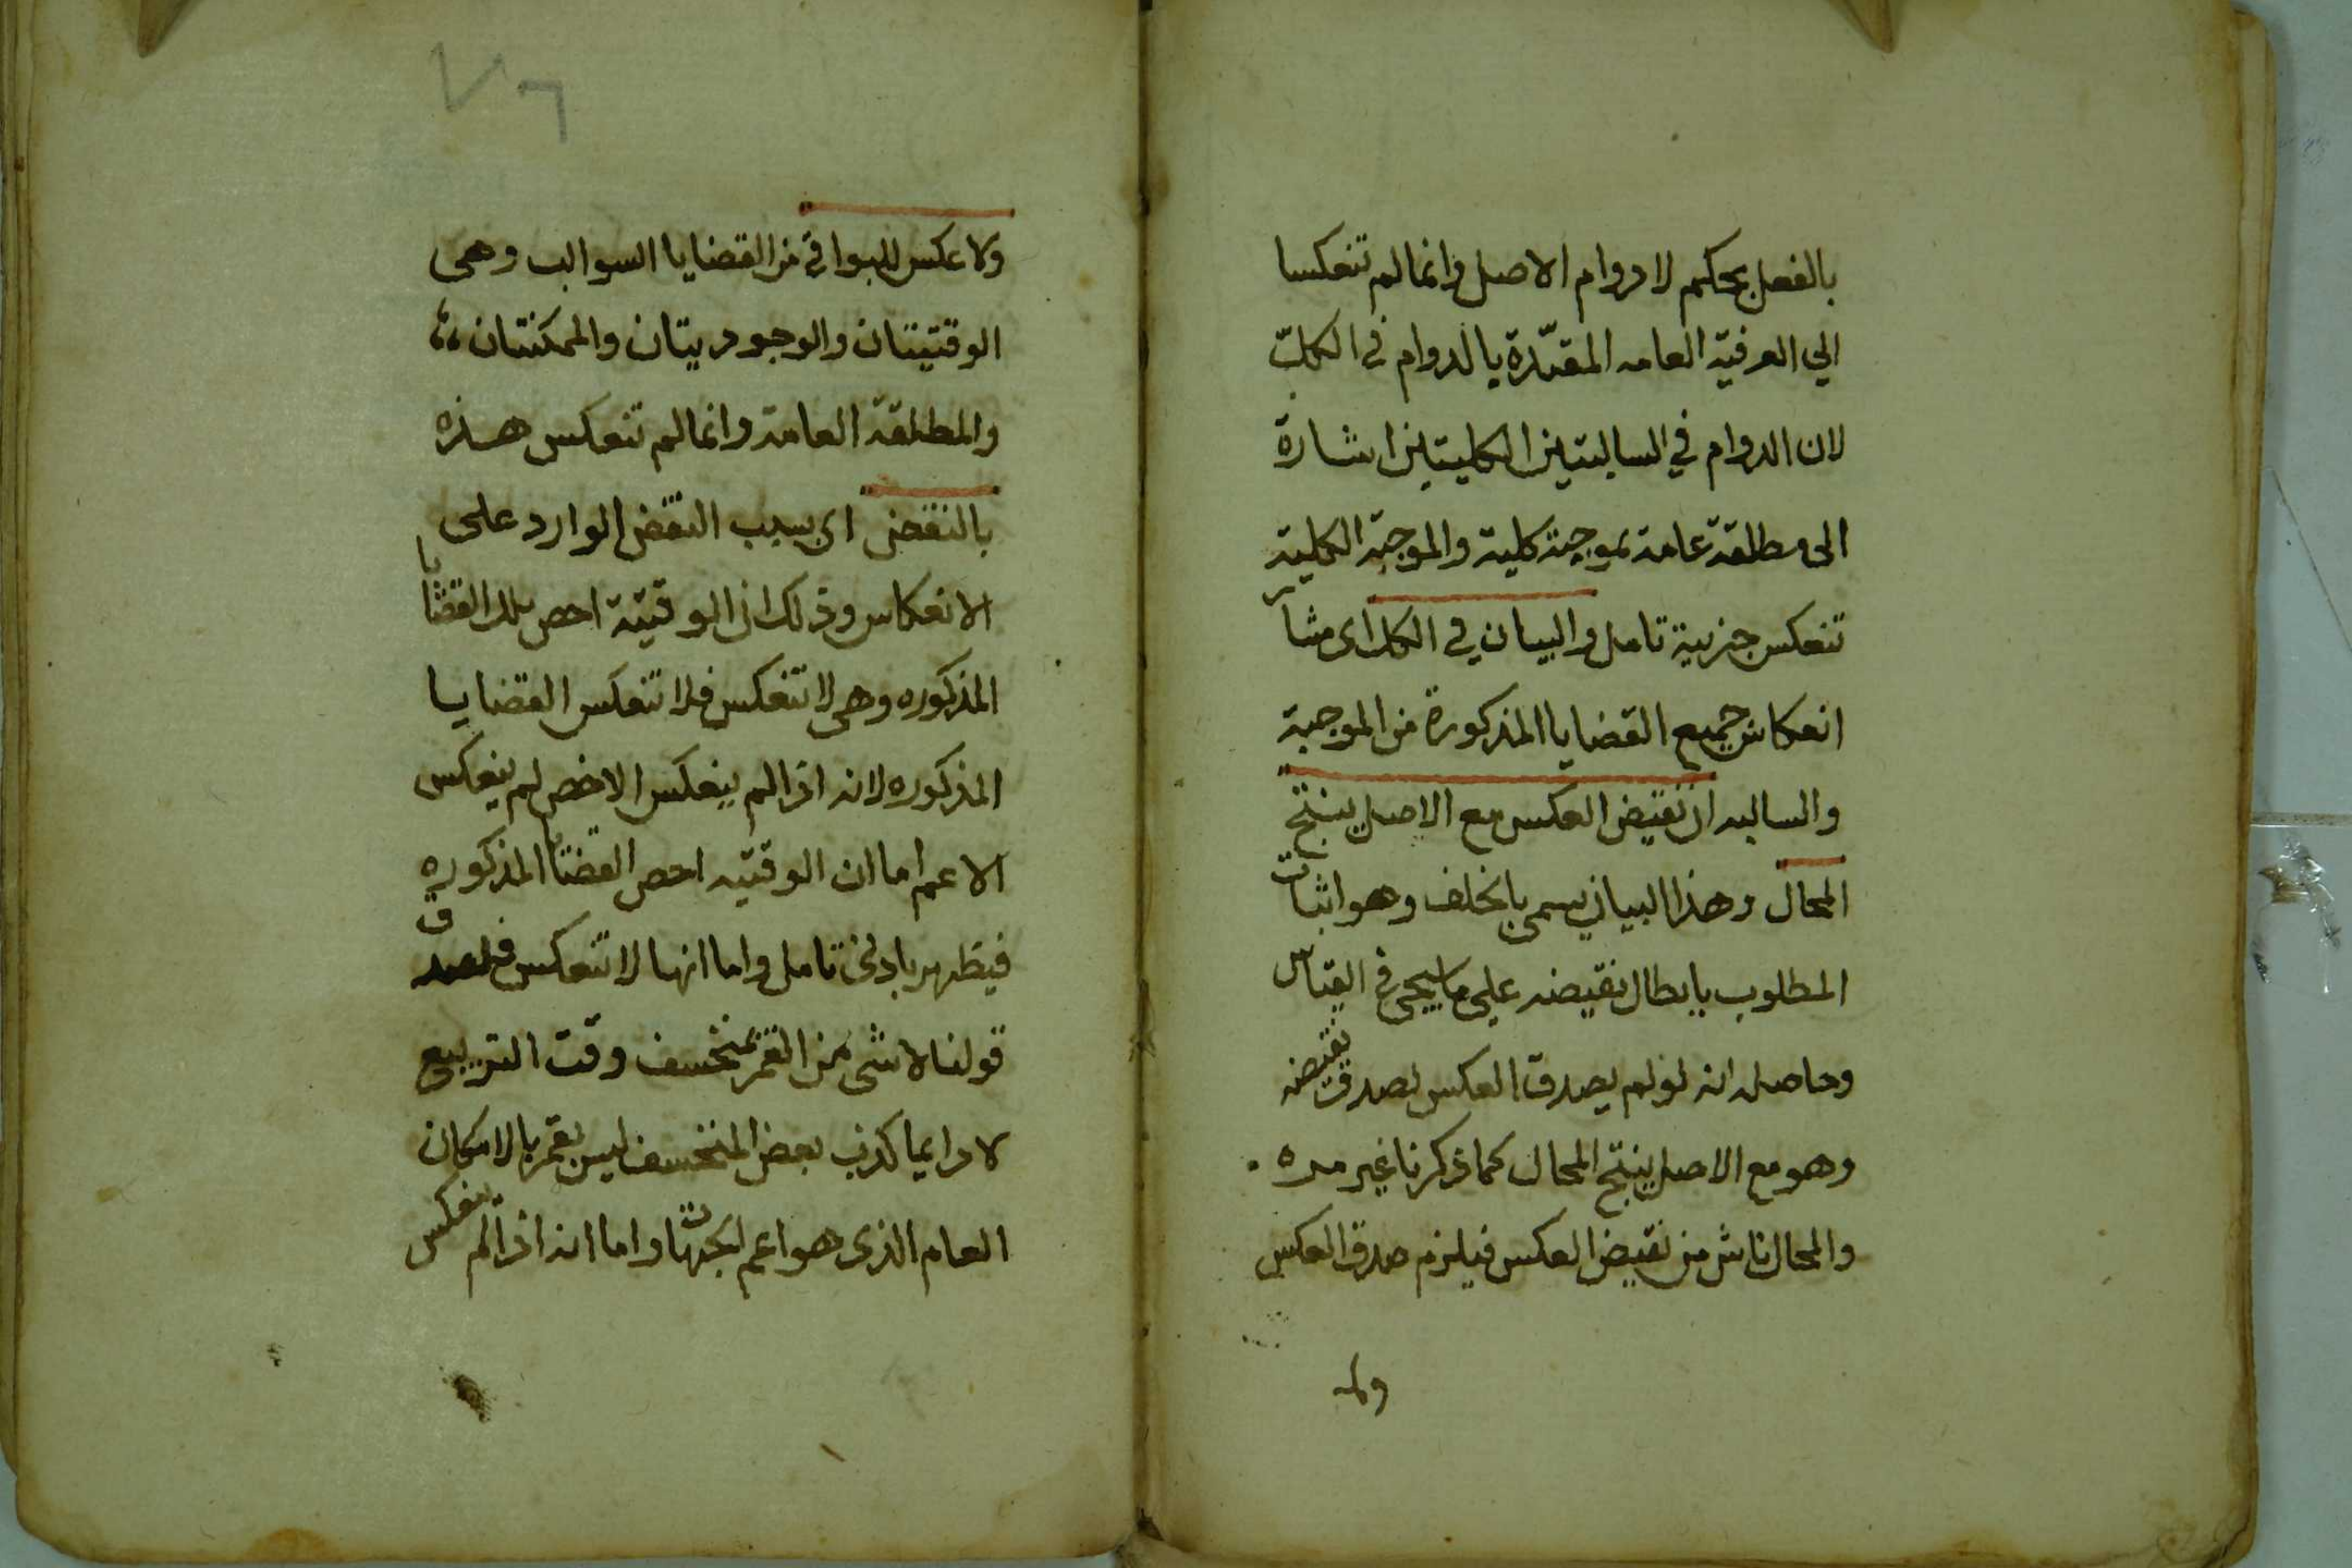 بالفعل بحكم لادوام الاصل وانما لم تنعكسا
الي العرفية العامه المقيّدة بالدوام في الكلّ
لان الدوام في السالبتين الكليتين اشارة
الى مطلقة عامة موجبة كلية والموجبة الكلية
تنعكس جزيية تامل والبيان في الكل اى
انعكاس جميع القضايا المذكورة من الموجبة
والسالبه ان نقيض العكس مع الاصل ينتج
المحال وهذا البيان يسمى بالخلف وهو اثبات
المطلوب بابطال نقيضه علي ما سيجى في القياس
وحاصله انه لو لم يصدق العكس لصدق نقيضه
وهو مع الاصل ينتج المحال كما ذكرنا غير مره
والمحال ناش من نقيض العكس فيلزم صدق العكس
ولا
٧٦
ولا عكس للبواقي من القضايا السوالب وهى
الوقتيتان والوجوديتان والممكنتان
والمطلقة العامة وانما لم تنعكس هذه
بالنقض اى بسبب النقض الوارد على
الانعكاس وذلك ان الوقتية اخص تلك القضايا
المذكوره وهى لا تنعكس فلا تنعكس القضايا
المذكوره لانه اذا لم ينعكس الاخص لم ينعكس
الاعم اما ان الوقتيه اخص القضايا المذكوره
فيظهر بادنى تامل واما انها لا تنعكس فلصدق
قولنا لا شى من القمر بمنخسف وقت التربيع
لا دايما كذب بعض المنخسف ليس بقمر بالامكان
العام الذى هو اعم الجهات واما انه اذا لم ينعكس